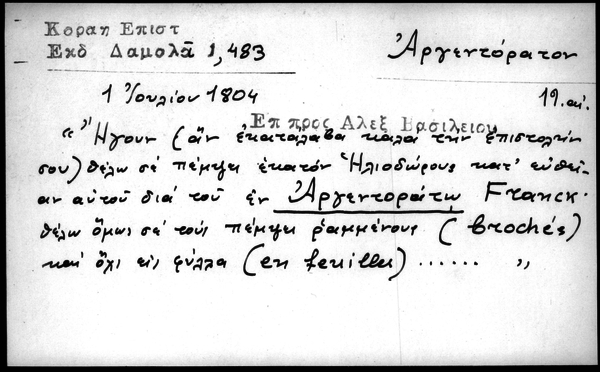 Κοραη Επιστ
Εκδ Δαμολᾶ 1,483
Ἀργεντόρατον
1 Ἰουλίου 1804
19. αἰ.
Επ προς Αλεξ Βασιλειου
“Ἤγουν (ἄν ἐκατάλαβα καλά τήν ἐπιστολήν
σου) θέλω σέ πέμψει ἑκατόν Ἡλιοδώρους κατ' εὐθεῖ-
αν αὐτοῦ διά τοῦ ἐν Ἀργεντοράτῳ Franck.
θέλω ὅμως σέ τούς πέμψει ῥαμμένους (brochés)
καί ὄχι εἰς φύλλα (en feuilles) ...... „